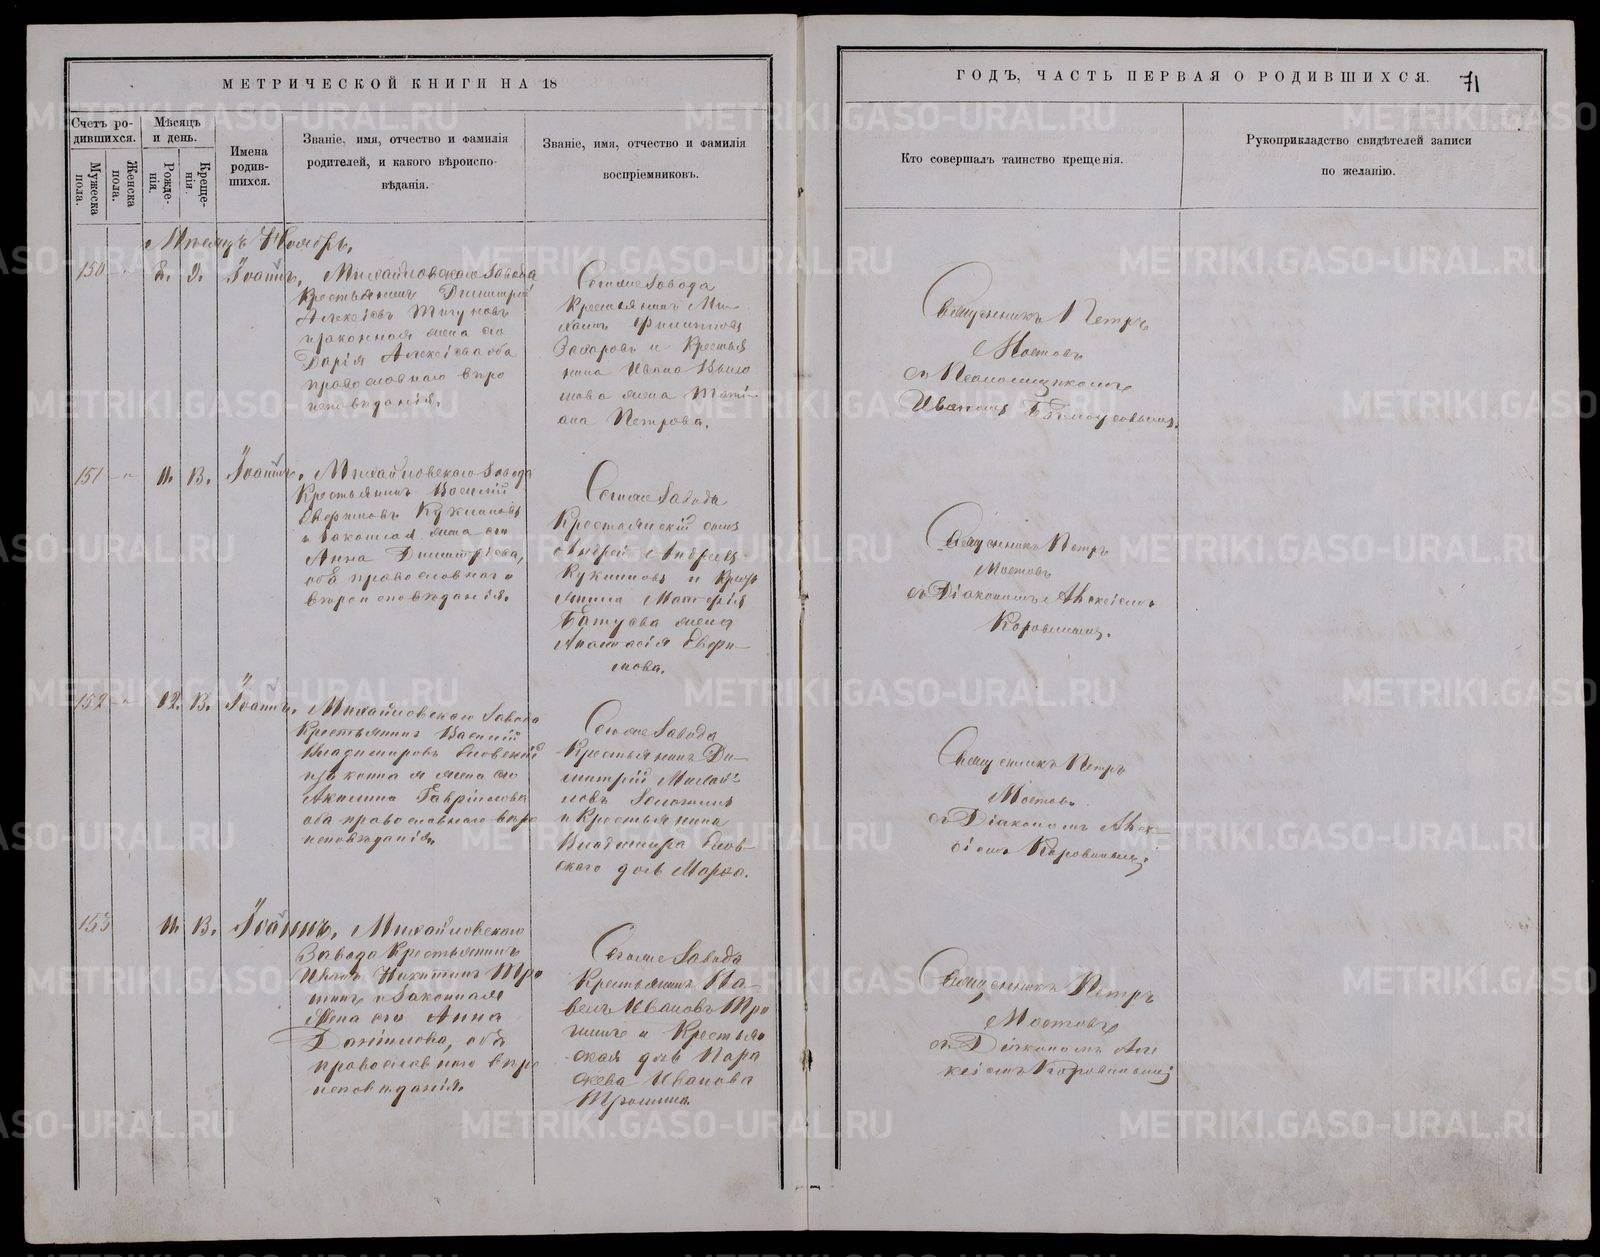 МЕТРИЧЕСКОЙ КНИГИ НА 18
Счетъ ро-
дившихся.
Мужеска
пола.
Женска
пола.
Мѣсяцъ
и день.
Рожде-
нія.
Креще-
нія.
Имена
родив-
шихся.
Званіе, имя, отчество и фамилія
родителей, и какого вѣроиспо-
вѣданія.
Званіе, имя, отчество и фамилія
воспріемниковъ.
Мѣсяцъ Ноябрь,
150 Іоаннъ, Михайловскаго Завода
Крестьянинъ Димитрій
Алексѣевъ
и законная жена его
Дарія Алексіева оба
православнаго вѣро
исповѣданія.
Тогоже Завода
Крестьянинъ Ми-
хаилъ Филипповъ
Захаровъ и Крестья
нина Ивана
жена Тати-
ана Петрова.
151 11. 13. Іоаннъ, Михайловскаго Завода
Крестьянинъ Василій
и законная жена его
Анна Димитріева,
оба православнаго
вѣроисповѣданія.
Тогоже Завода
Крестьянскій сынъ
Андрей Андреевъ
и Кресть
янина
жена
Анастасія Евфи-
мова.
152 12. 13. Іоаннъ, Михайловскаго Завода
Крестьянинъ Василій
Владимировъ
законная жена его
Акилина Гавріилова
оба православнаго вѣро
исповѣданія.
Тогоже Завода
Крестьянинъ Ди-
митрій Михай-
ловъ
и Крестьянина
Владимира
скаго дочь Марѳа.
153 11. 13. Іоаннъ, Михайловскаго
Завода Крестьянинъ
Иванъ Никитинъ Тро
шинъ и Законная
Жена его Анна
Даніилова, оба
православнаго вѣро
исповѣданія.
Тогоже Завода
Крестьянинъ Па-
велъ Ивановъ Тро
шинъ и Крестьян
ская дочь Пара
скева Иванова
Трошина.
ГОДЪ, ЧАСТЬ ПЕРВАЯ О РОДИВШИХСЯ.
71
Кто совершалъ таинство крещенія.
Рукоприкладство свидѣтелей записи
по желанію.
Священникъ Петръ
Мостовъ
съ Псаломщикомъ
Иваномъ
Священникъ Петръ
Мостовъ
съ Діакономъ Алексіемъ
Коровинымъ.
Священникъ Петръ
Мостовъ
съ Діакономъ Алек-
сіемъ Коровинымъ.
Священникъ Петръ
Мостовъ
съ Діакономъ Але
ксіемъ Коровинымъ
METRIKI.GASO-URAL.RU